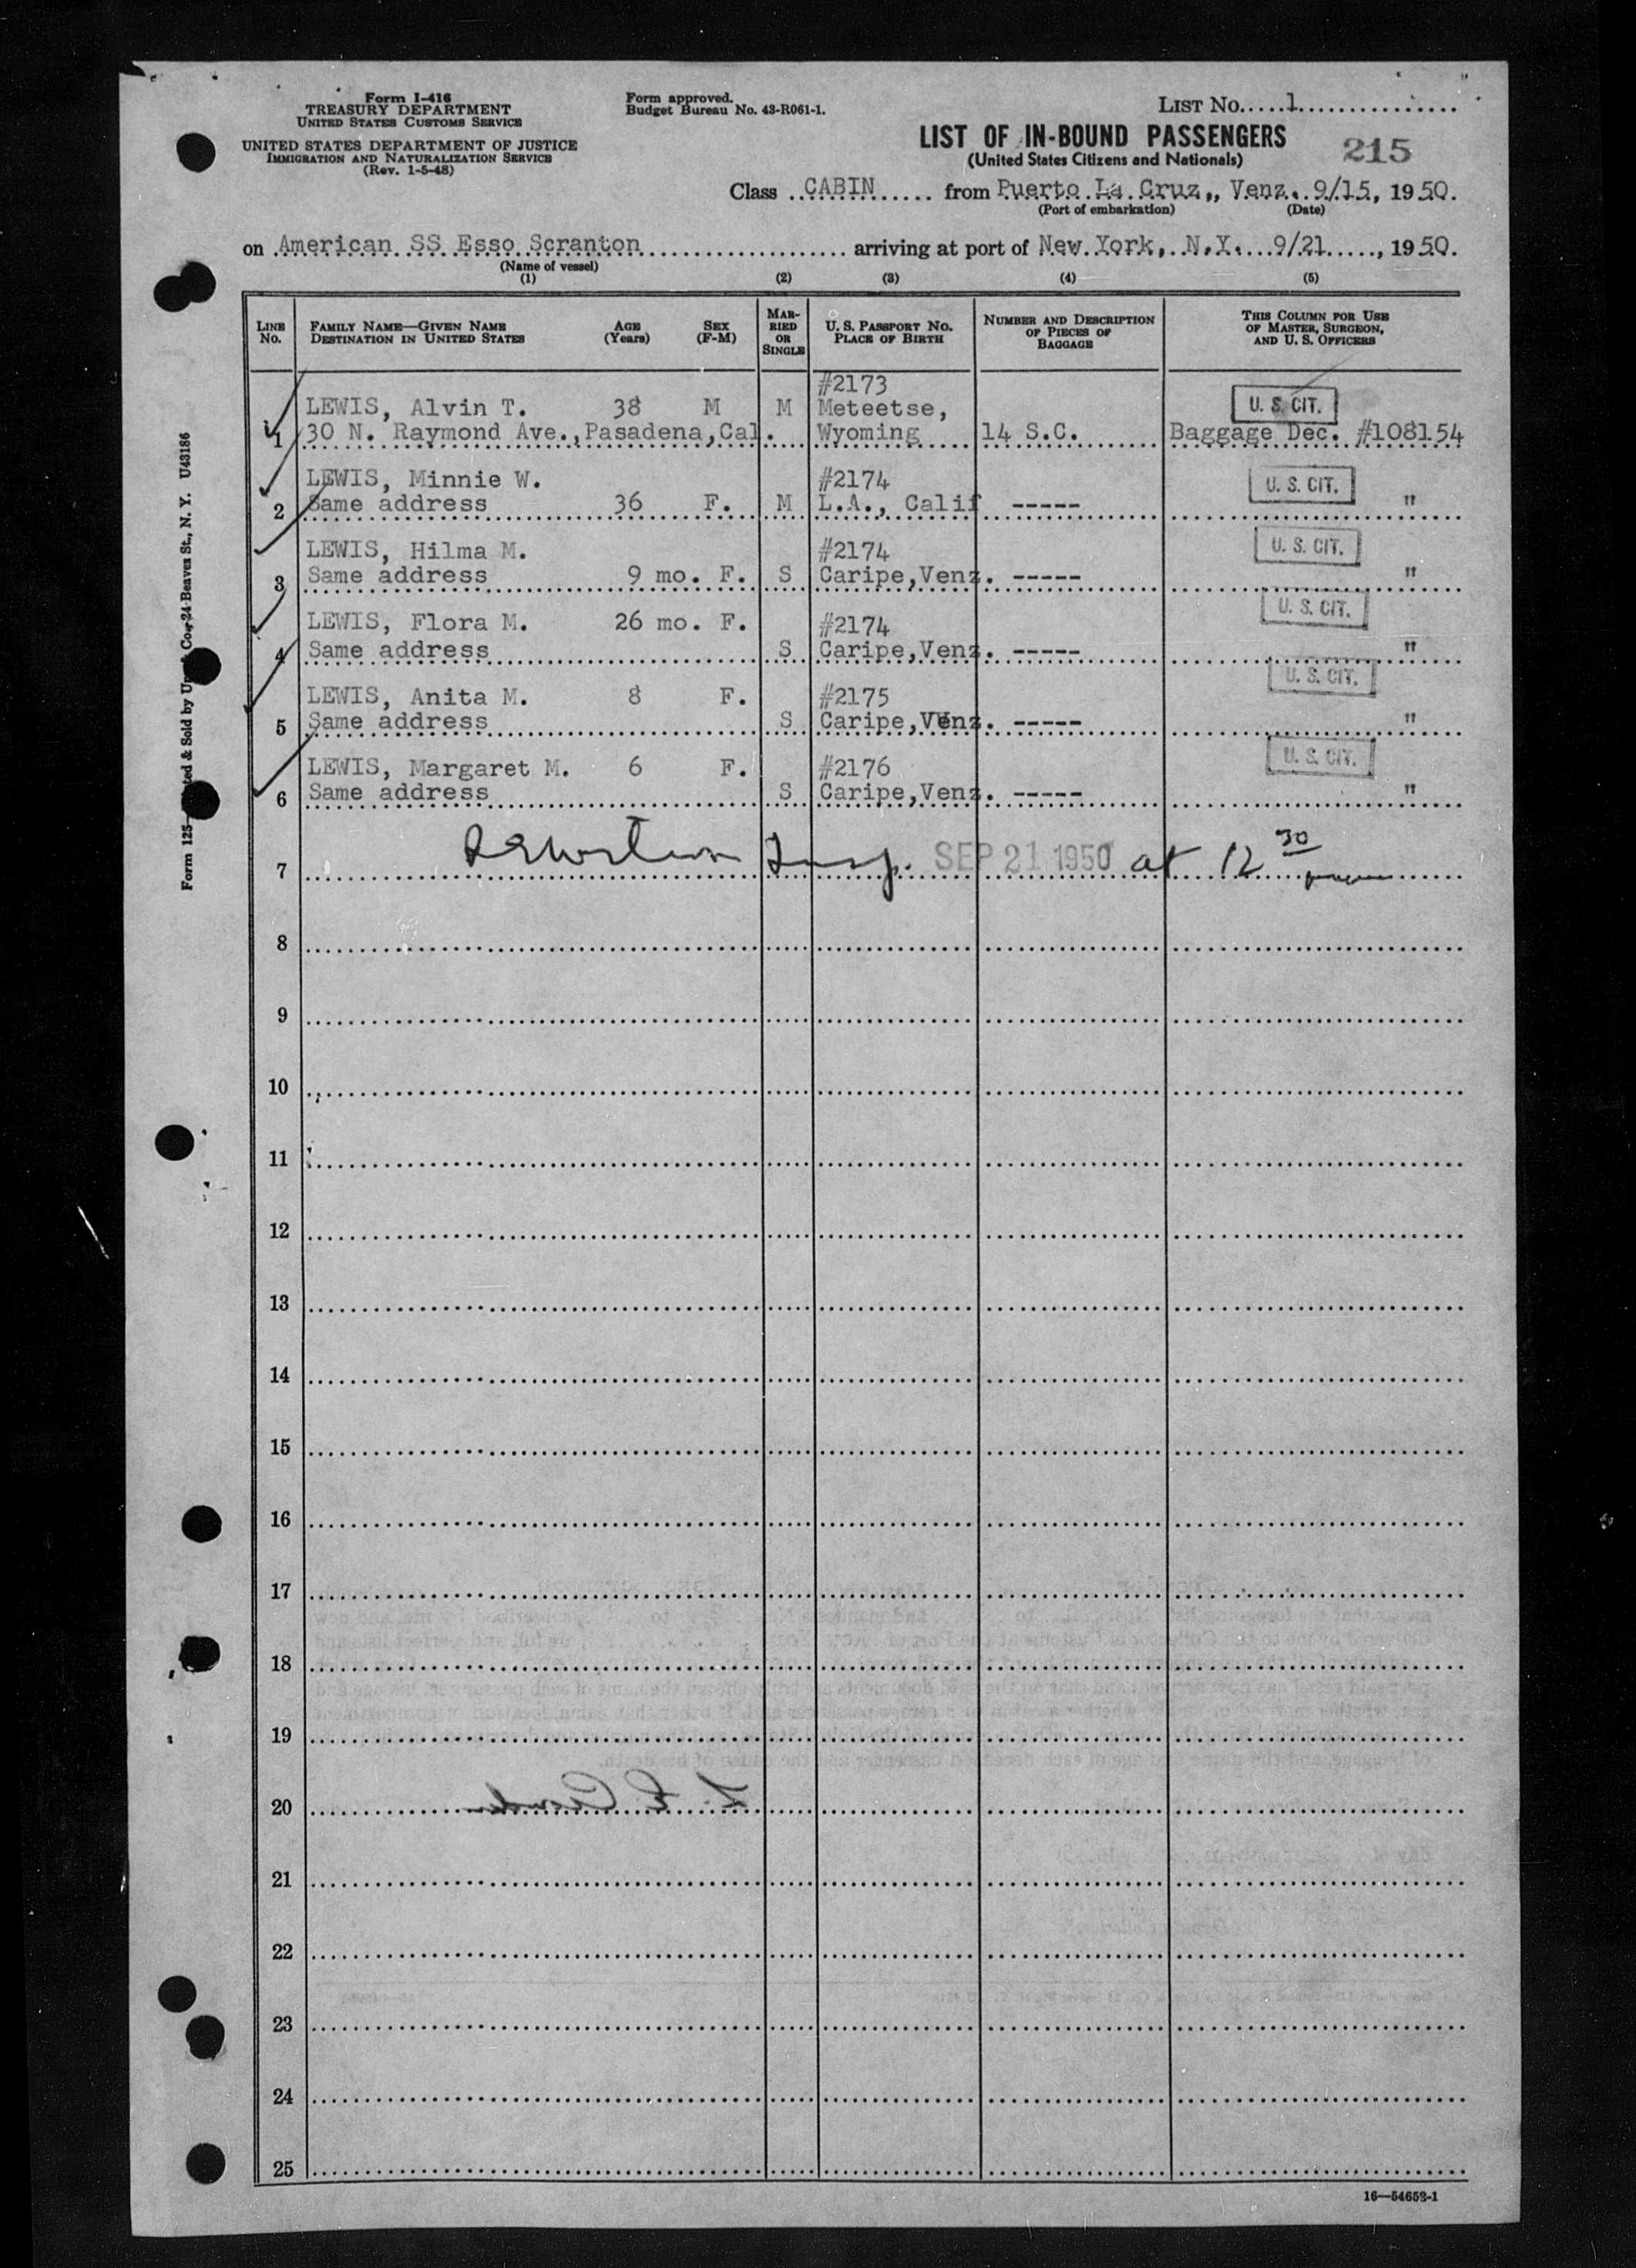 Form I-416
TREASURY DEPARTMENT
UNITED STATES CUSTOMS SERVICE
UNITED STATES DEPARTMENT OF JUSTICE
IMMIGRATION AND NATURALIZATION SERVICE
(Rev. 1-5-48)
Form approved.
Budget Bureau No. 43-R061-1.
LIST No. 1
LIST OF IN-BOUND PASSENGERS
(United States Citizens and Nationals)
215
Class CABIN from Puerto La Cruz, Venz. 9/15, 1950.
(Port of embarkation) (Date)
on American SS Esso Scranton arriving at port of New York, N.Y. 9/21, 1950.
(Name of vessel)
(1) (2) (3) (4) (5)
LINE No. FAMILY NAME—GIVEN NAME DESTINATION IN UNITED STATES AGE (Years) SEX (F-M) MARRIED OR SINGLE U. S. PASSPORT NO. PLACE OF BIRTH NUMBER AND DESCRIPTION OF PIECES OF BAGGAGE THIS COLUMN FOR USE OF MASTER, SURGEON, AND U. S. OFFICERS
#2173
LEWIS, Alvin T. 38 M M Meteetse, U. S. CIT.
1 30 N. Raymond Ave.,Pasadena,Cal. Wyoming 14 S.C. Baggage Dec. #108154
LEWIS, Minnie W. #2174 U. S. CIT.
2 Same address 36 F. M L.A., Calif ----- "
LEWIS, Hilma M. #2174 U. S. CIT.
3 Same address 9 mo. F. S Caripe,Venz. ----- "
LEWIS, Flora M. 26 mo. F. #2174 U. S. CIT.
4 Same address S Caripe,Venz. ----- "
LEWIS, Anita M. 8 F. #2175 U. S. CIT.
5 Same address S Caripe,Venz. ----- "
LEWIS, Margaret M. 6 F. #2176 U. S. CIT.
6 Same address S Caripe,Venz. ----- "
7 Insp. SEP 21 1950 at 12 30
8
9
10
11
12
13
14
15
16
17
18
19
20
21
22
23
24
25
16—54652-1
Form 125 & Sold by Co., 24 Beaver St., N. Y. U43186